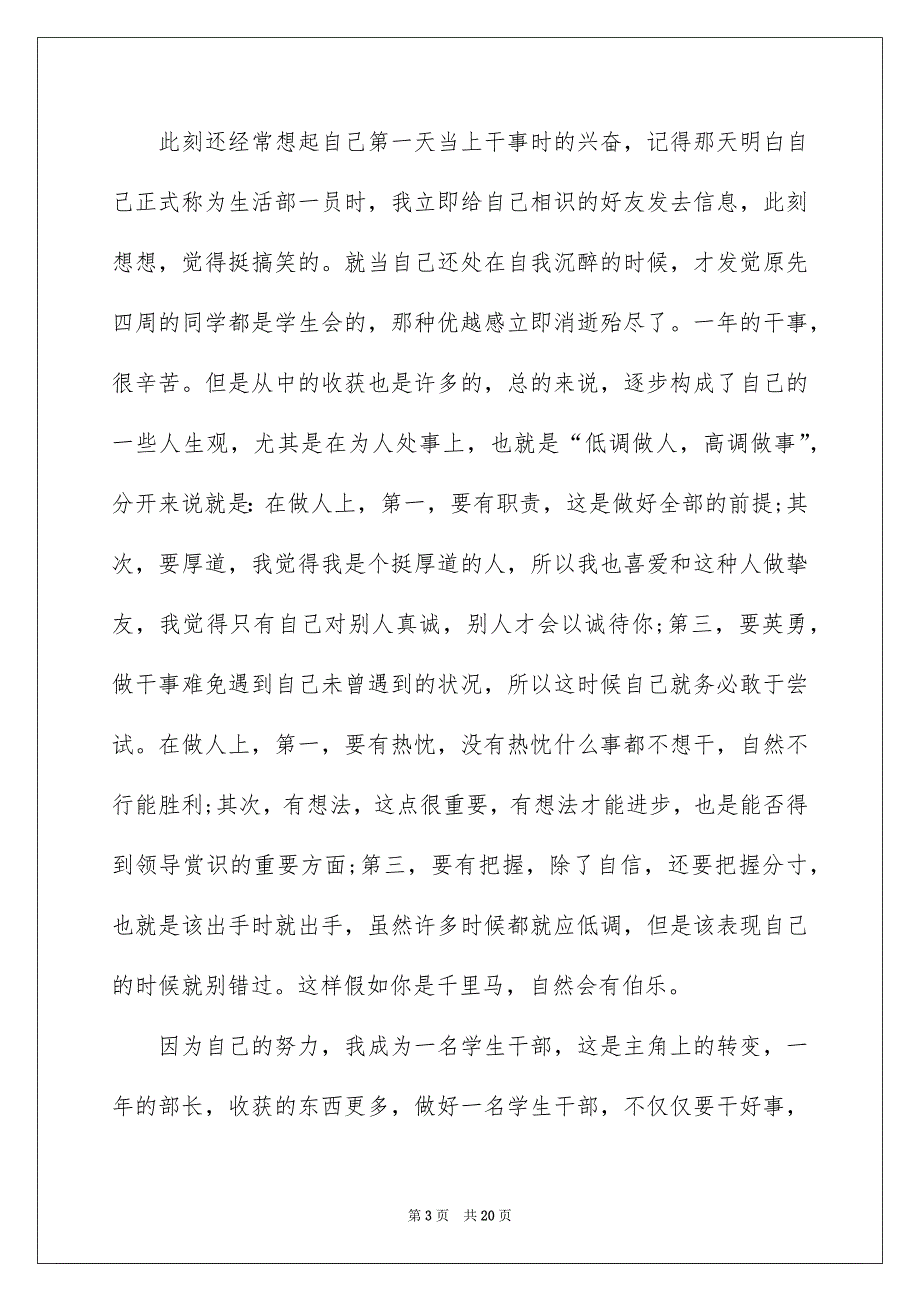 此刻还经常想起自己第一天当上干事时的兴奋，记得那天明白自
己正式称为生活部一员时，我立即给自己相识的好友发去信息，此刻
想想，觉得挺搞笑的。就当自己还处在自我沉醉的时候，才发觉原先
四周的同学都是学生会的，那种优越感立即消逝殆尽了。一年的干事，
很辛苦。但是从中的收获也是许多的，总的来说，逐步构成了自己的
一些人生观，尤其是在为人处事上，也就是“低调做人，高调做事”，
分开来说就是：在做人上，第一，要有职责，这是做好全部的前提;其
次，要厚道，我觉得我是个挺厚道的人，所以我也喜爱和这种人做挚
友，我觉得只有自己对别人真诚，别人才会以诚待你;第三，要英勇，
做干事难免遇到自己未曾遇到的状况，所以这时候自己就务必敢于尝
试。在做人上，第一，要有热忱，没有热忱什么事都不想干，自然不
行能胜利;其次，有想法，这点很重要，有想法才能进步，也是能否得
到领导赏识的重要方面;第三，要有把握，除了自信，还要把握分寸，
也就是该出手时就出手，虽然许多时候都就应低调，但是该表现自己
的时候就别错过。这样假如你是千里马，自然会有伯乐。
因为自己的努力，我成为一名学生干部，这是主角上的转变，一
年的部长，收获的东西更多，做好一名学生干部，不仅仅要干好事，
第 3 页 共 20 页